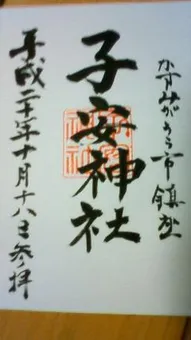 かすみがうら市鎮座
子安神社
平成二十二年十月十八日参拝